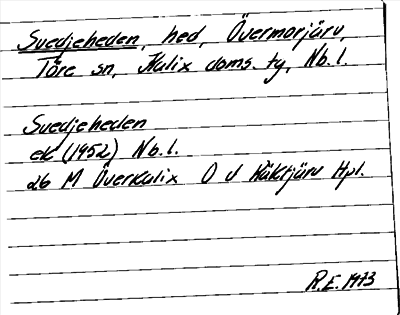 Svedjeheden, hed, Övermorjärv,
Töre sn, Kalix doms. tg, Nb. l.
Svedjeheden
ek (1952) Nb. l.
26 M Överkalix O v Räktjärv Hpl.
R.E. 1973